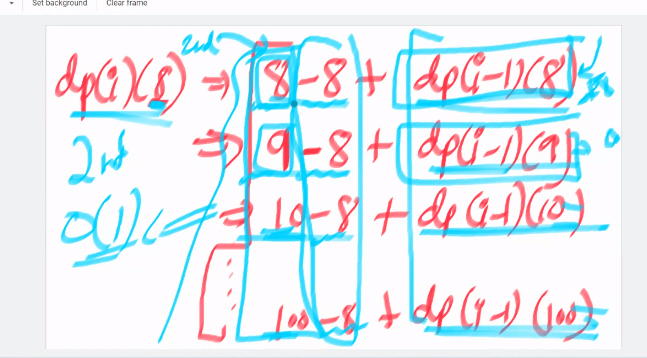 Set background Clear frame
2nd
dp(i)(8) ⇒ 8-8 + dp(i-1)(8)
⇒ 9-8 + dp(i-1)(9)
2nd
O(1) ⇒ 10-8 + dp(i-1)(10)
100-8 + dp(i-1)(100)